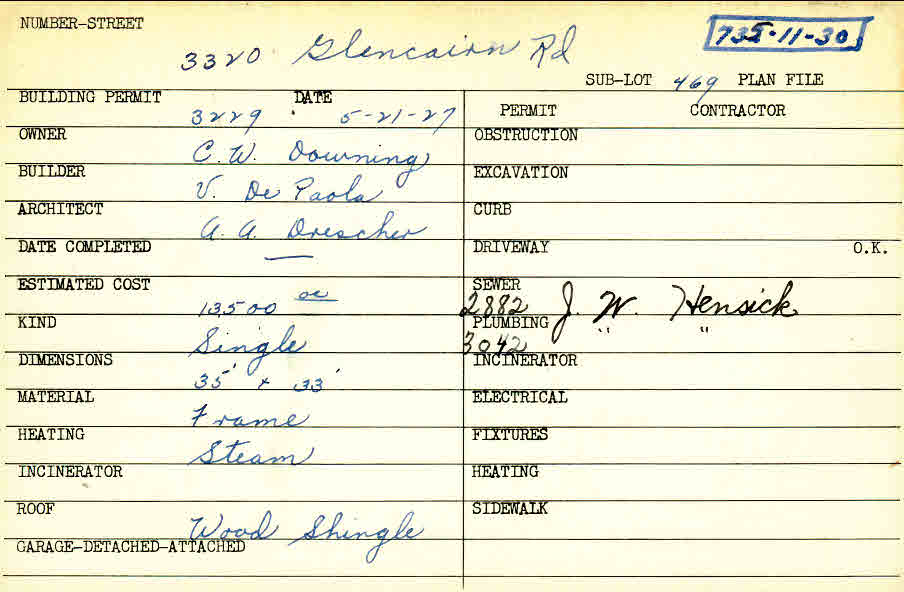 NUMBER-STREET
3320 Glencairn Rd
735-11-30
SUB-LOT 469 PLAN FILE
BUILDING PERMIT DATE
3229 5-21-27
PERMIT CONTRACTOR
OWNER
C. W. Downing
OBSTRUCTION
BUILDER
V. De Paola
EXCAVATION
ARCHITECT
A. A. Drescher
CURB
DATE COMPLETED
—
DRIVEWAY O.K.
ESTIMATED COST
13500 oo
SEWER
2882 J. W. Hensick
KIND
Single
PLUMBING " "
3042
DIMENSIONS
35' x 33'
INCINERATOR
MATERIAL
Frame
ELECTRICAL
HEATING
Steam
FIXTURES
INCINERATOR
HEATING
ROOF
Wood Shingle
SIDEWALK
GARAGE-DETACHED-ATTACHED